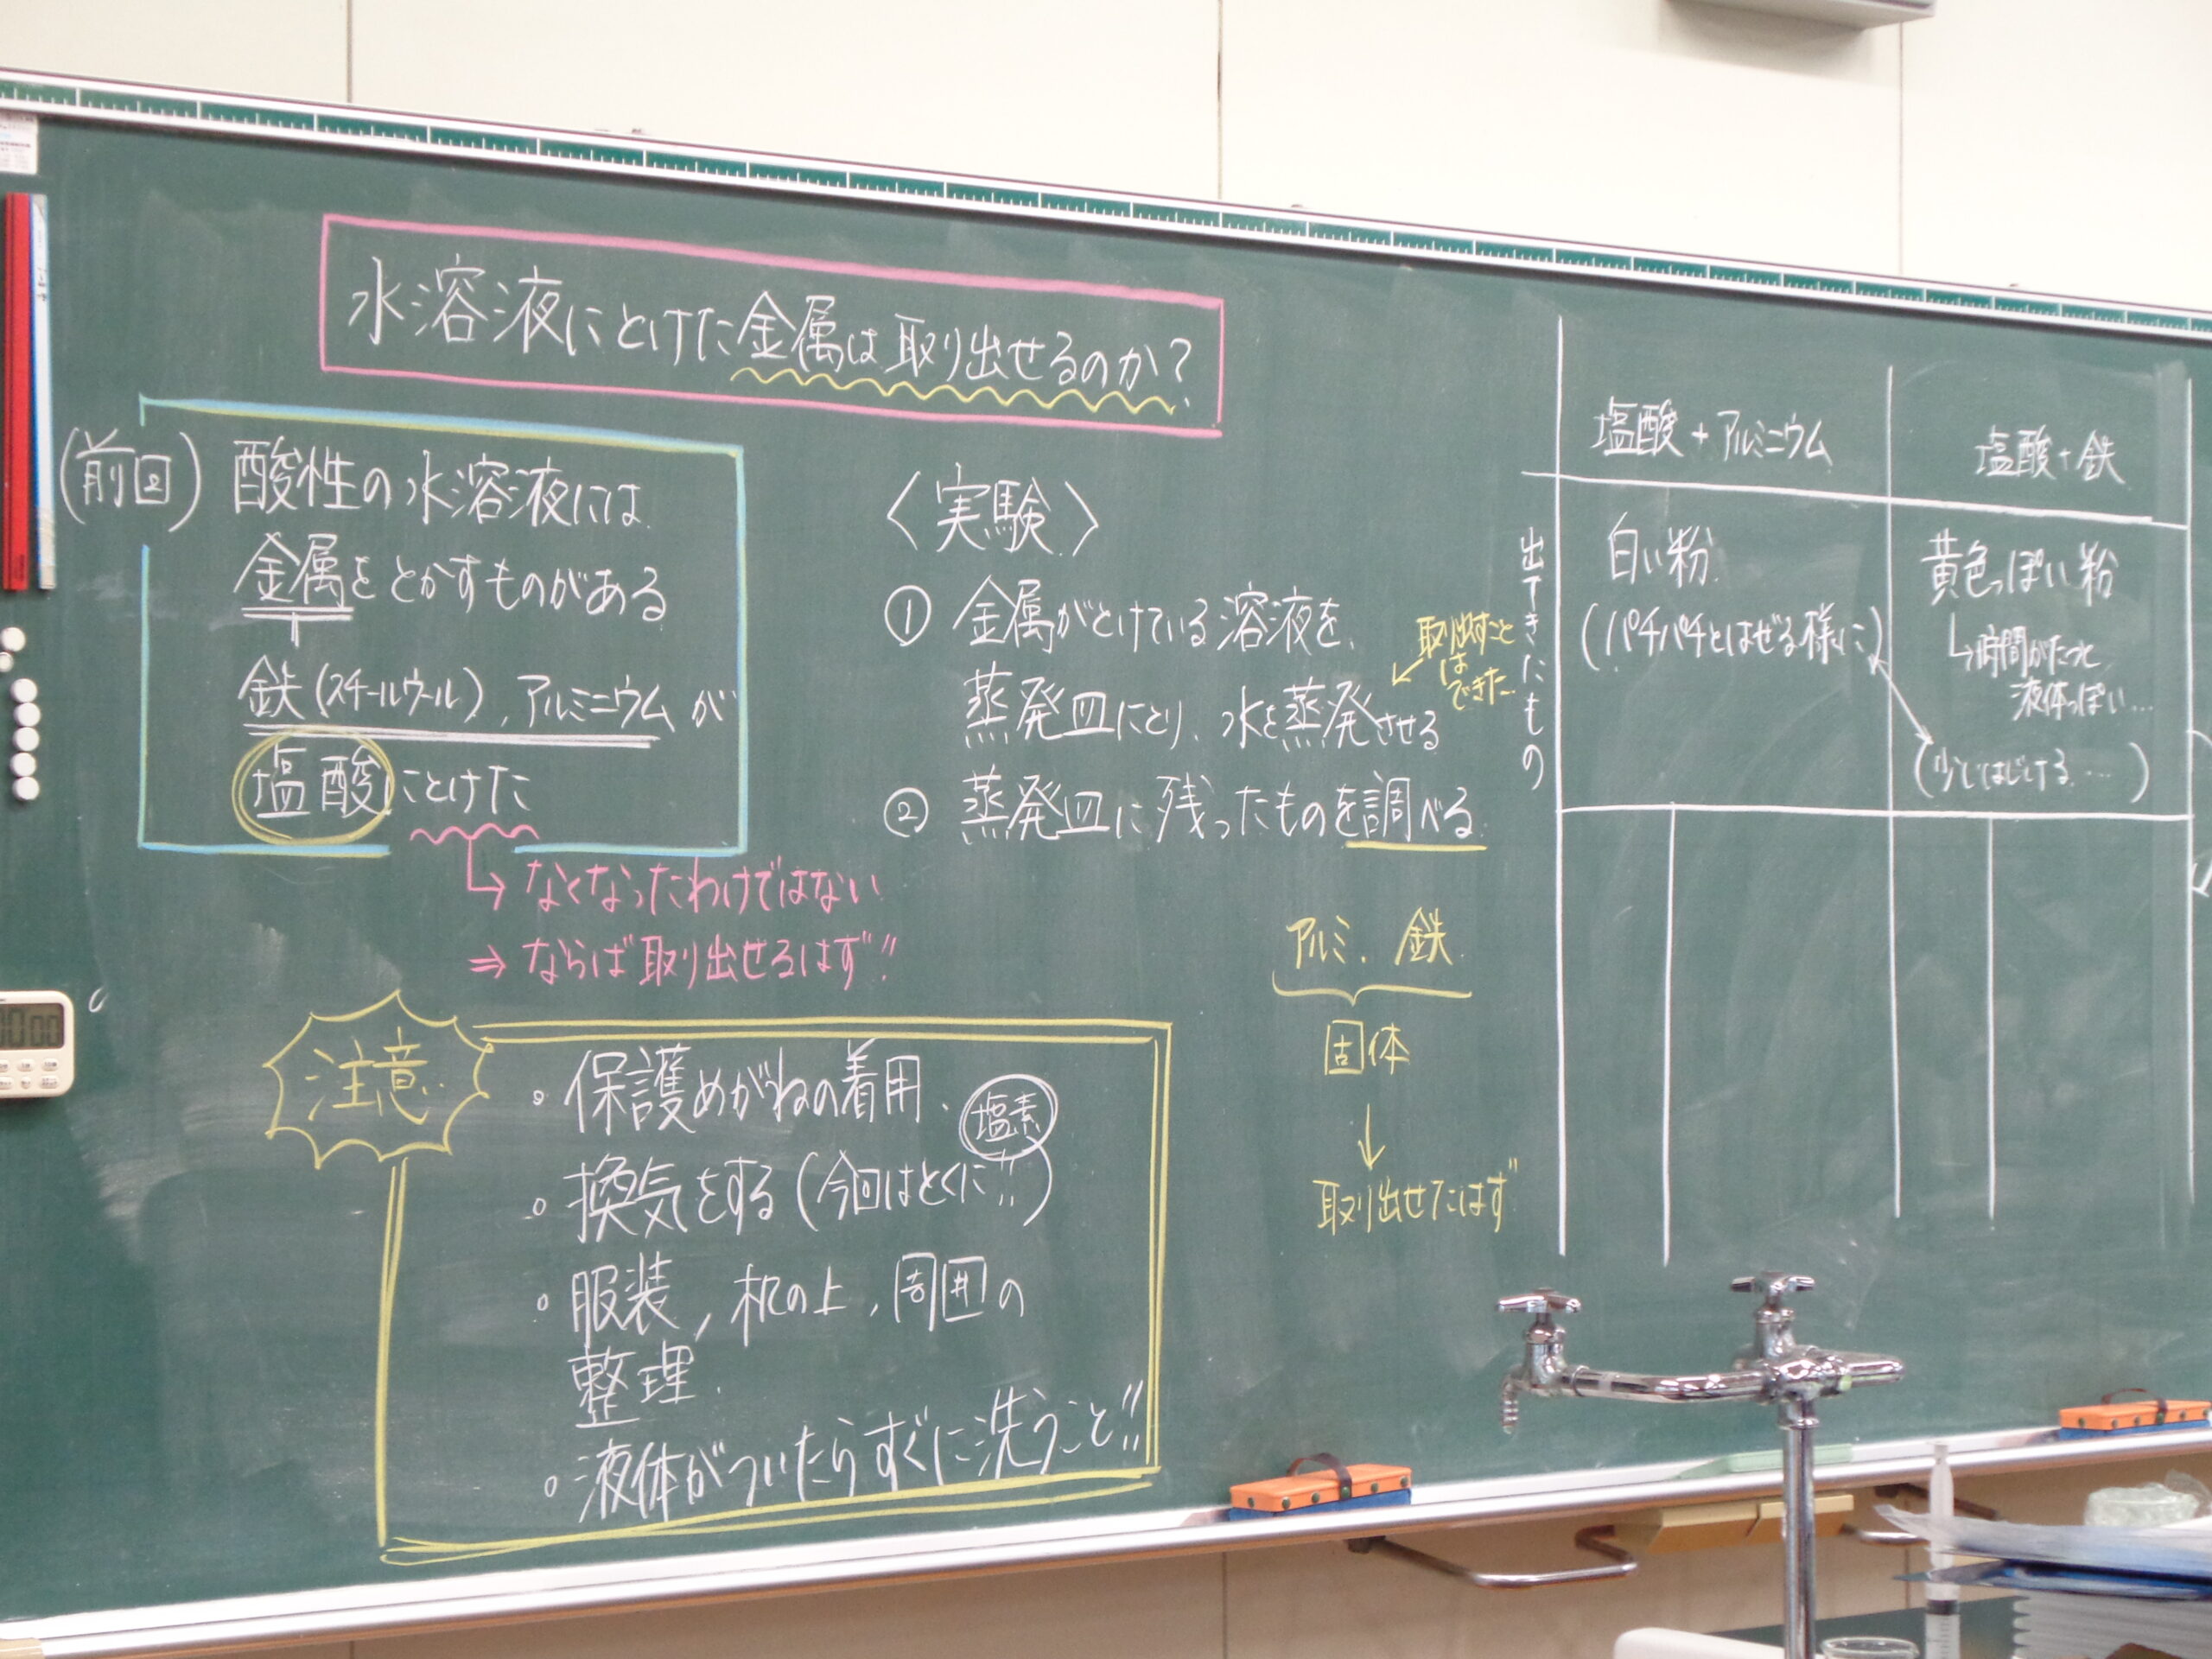 水溶液にとけた金属は取り出せるのか?
(前回)酸性の水溶液には
金属をとかすものがある
鉄(スチールウール),アルミニウムが
塩酸にとけた
→なくなったわけではない
⇒ならば取り出せるはず!!
注意
・保護めがねの着用.
塩素
・換気をする(今回はとくに!!)
・服装,机の上,周囲の
整理.
・液体がついたらすぐに洗うこと!!
〈実験〉
① 金属がとけている溶液を、
蒸発皿にとり、水を蒸発させる
取り出すこと
は
できた…
② 蒸発皿に残ったものを調べる.
アルミ.鉄.
固体
↓
取り出せたはず
出てきたもの
塩酸+アルミニウム
塩酸+鉄
白い粉.
(パチパチとはぜる様に)
黄色っぽい粉
↳時間がたつと、
液体っぽい…
(少しはじける.…)
00